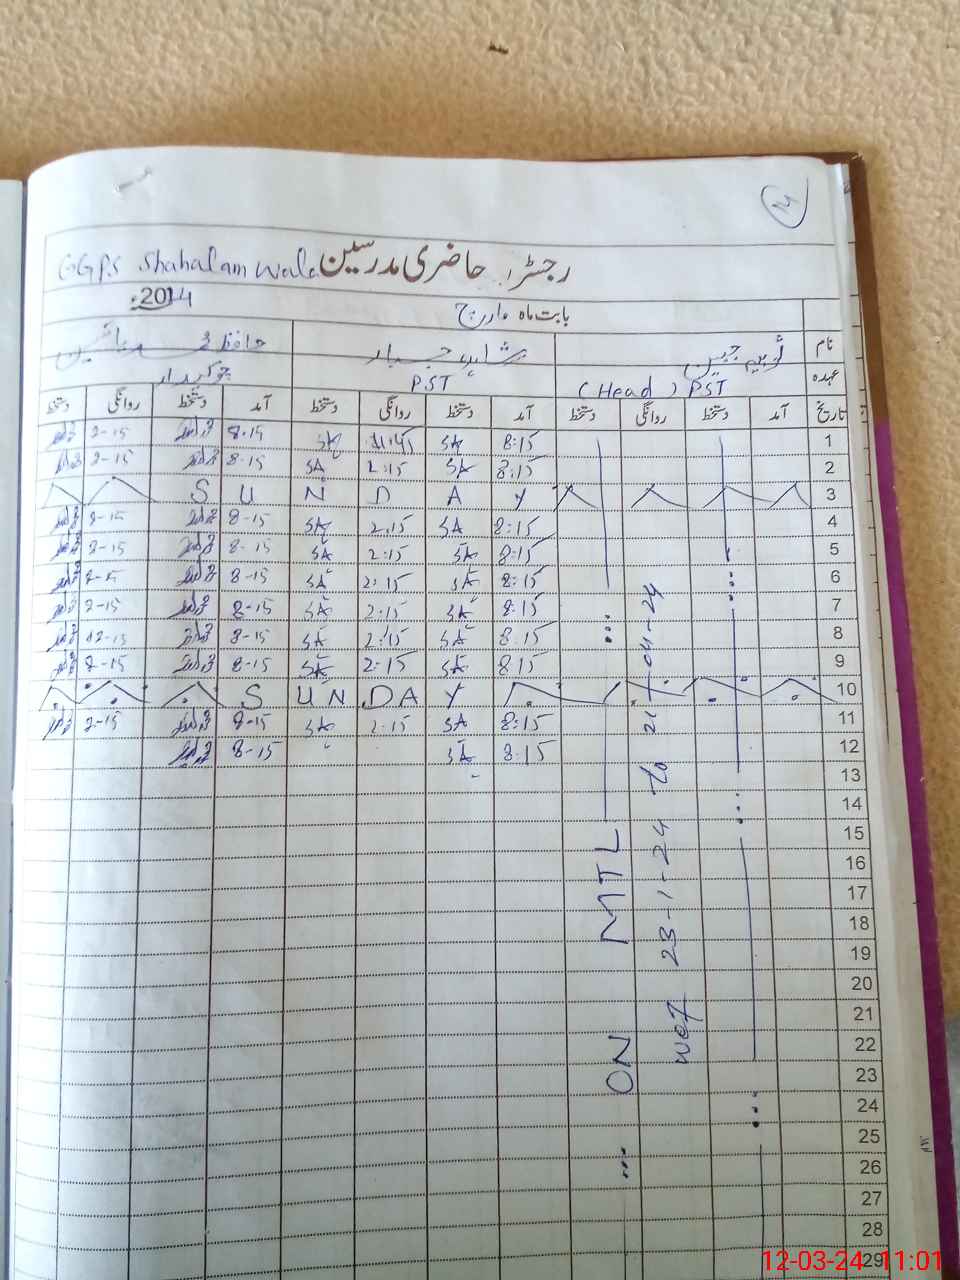 14
GGPS Shahalam wala رجسٹر حاضری مدرسین
بابت ماہ مارچ 2024ء
نام ثوبیہ جبیں شاہد جبار حافظ محمد
عہدہ PST (Head) PST چوکیدار
تاریخ آمد دستخط روانگی دستخط آمد دستخط روانگی دستخط آمد دستخط روانگی دستخط
1 8:15 SA SA 8-15 2-15
2 8:15 SA 2:15 SA 8-15 2-15
3 S U N D A Y
4 8:15 SA 2:15 SA 8-15 2-15
5 8:15 SA 2:15 SA 8-15 2-15
6 8:15 SA 2:15 SA 8-15 2-15
7 8:15 SA 2:15 SA 8-15 2-15
8 8:15 SA 2:15 SA 8-15 12-15
9 8:15 SA 2:15 SA 8-15 2-15
10 S U N D A Y
11 8:15 SA 2:15 SA 8-15 2-15
12 8:15 SA 8-15
13
14
15
16
17
18
19
20
21
22
23
24
25
26
27
28
29
ON MTL
wef 23-1-24 to 21-04-24
12-03-24 11:01